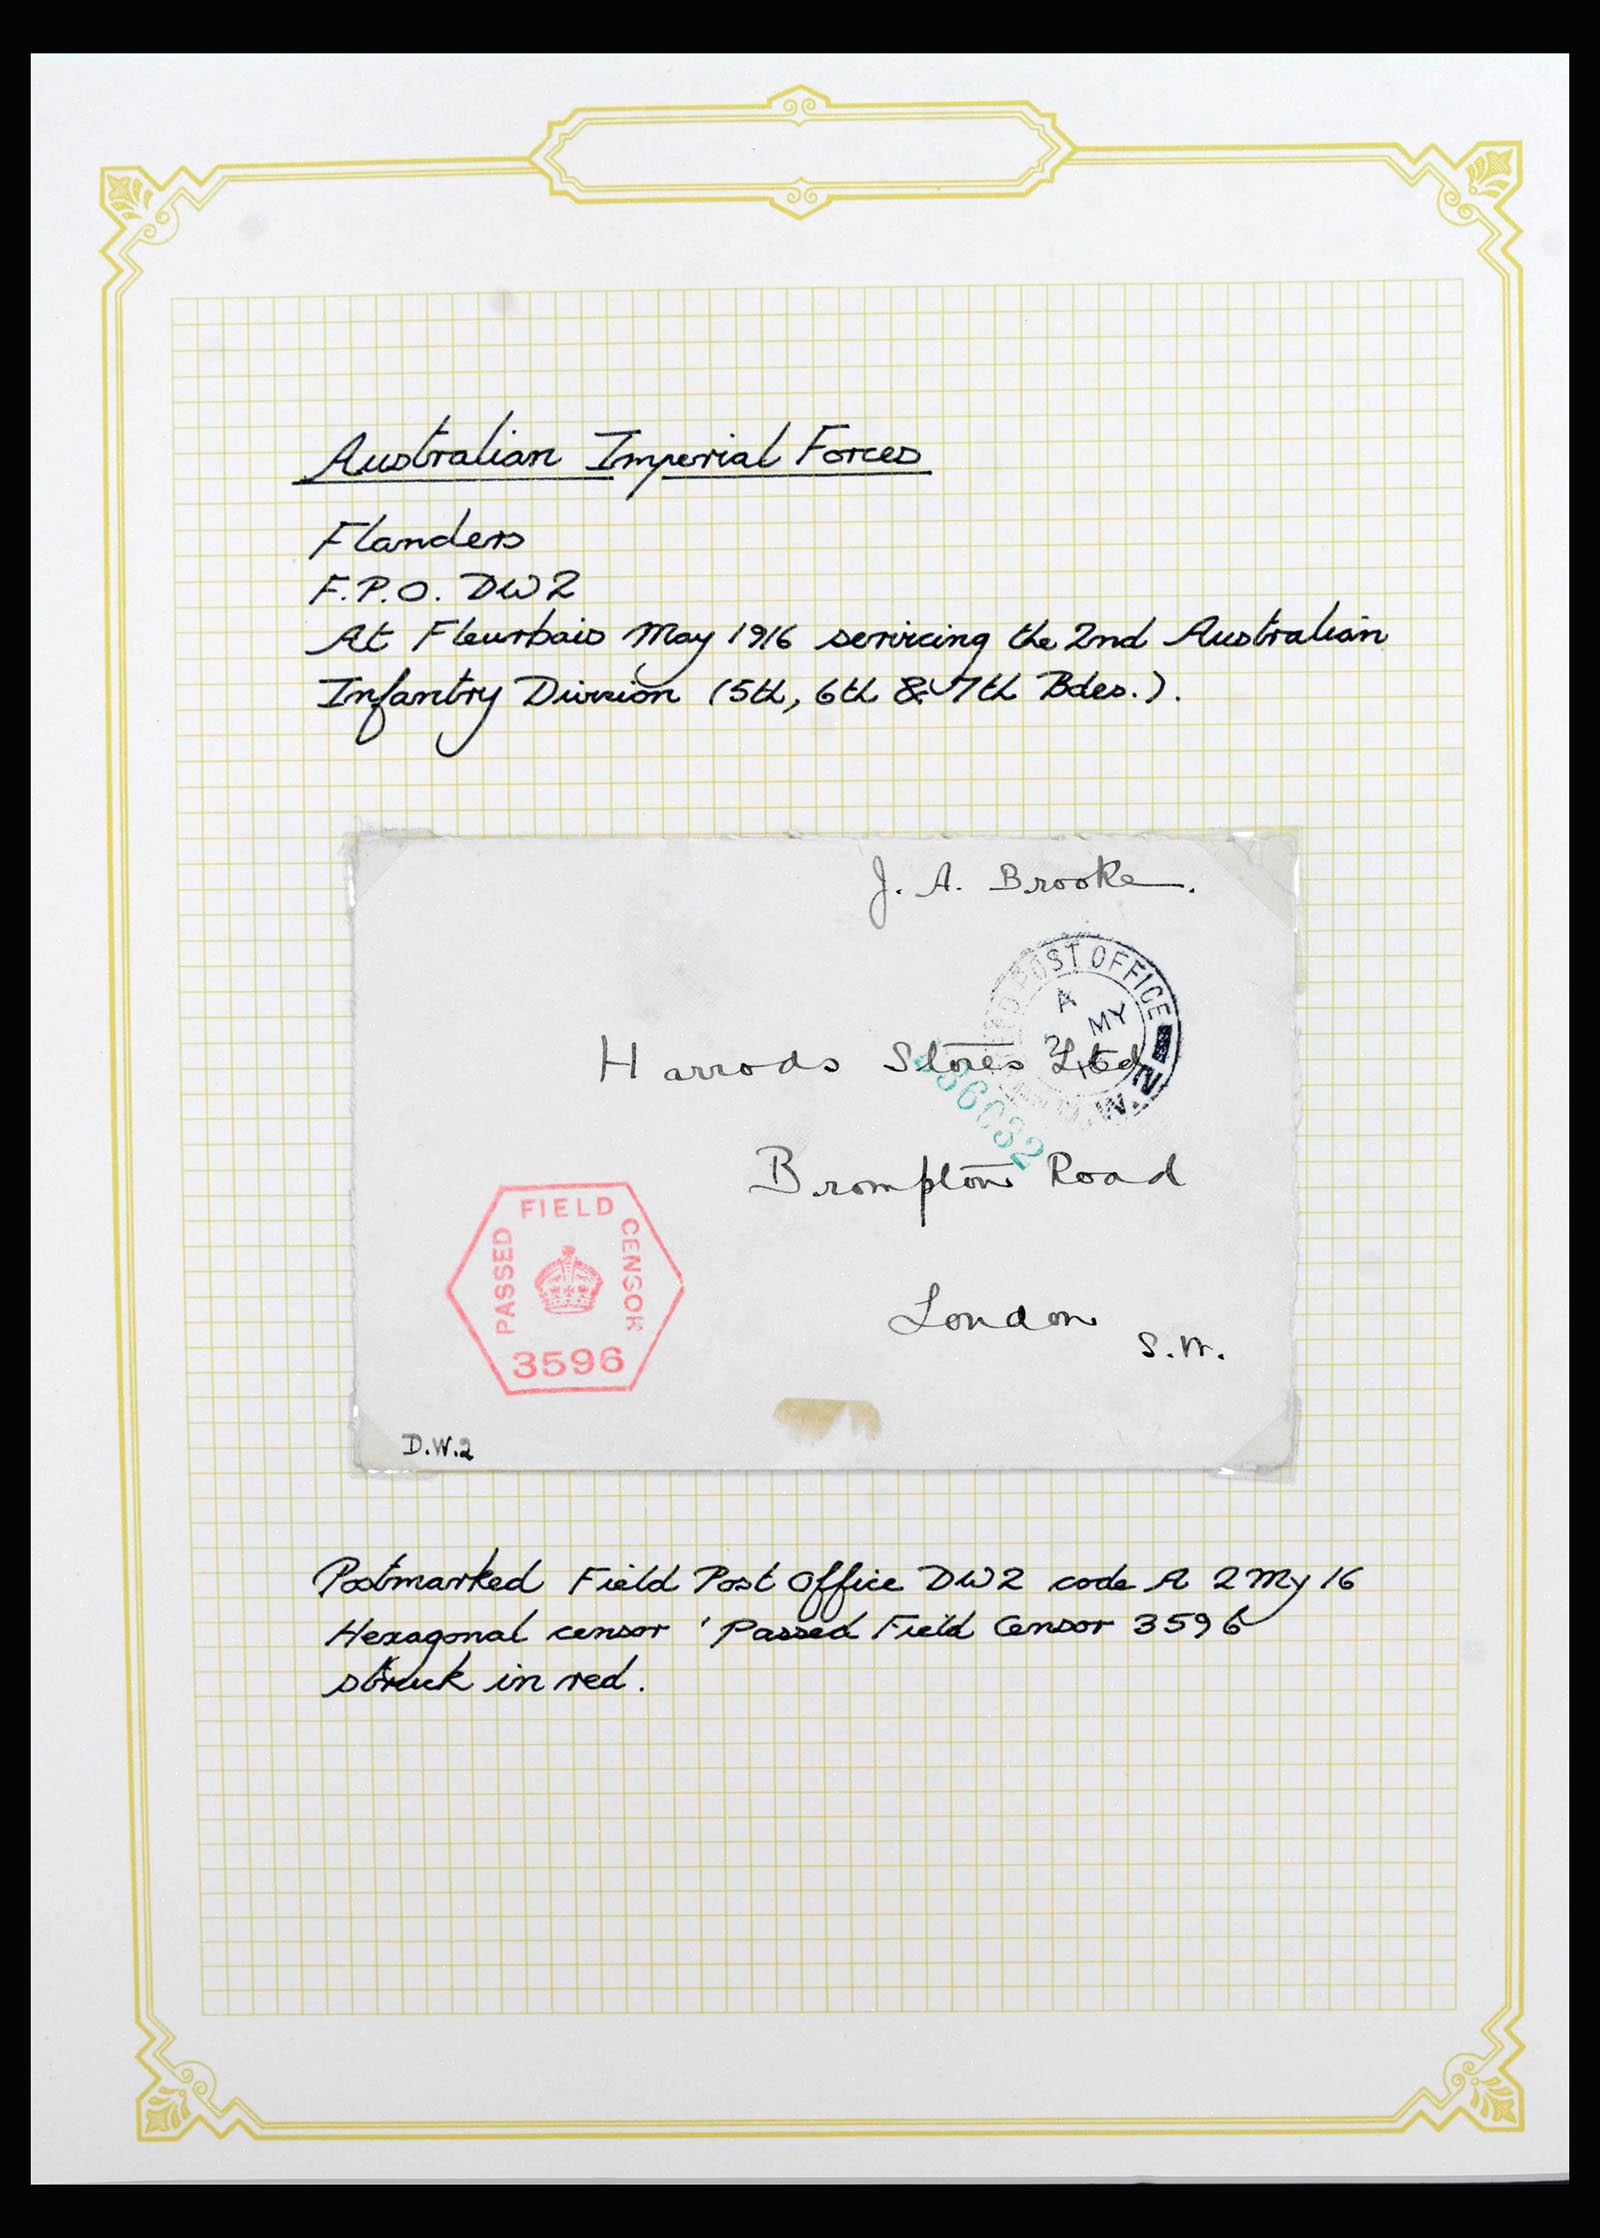 Australian Imperial Forces
Flanders
F.P.O. DW2
At Fleurbaix May 1916 servicing the 2nd Australian
Infantry Division (5th, 6th & 7th Bdes.).
J. A. Brooke.
FIELD POST OFFICE
A
2 MY
16
D.W.2
Harrods Stores Ltd
Brompton Road
London
S.W.
PASSED FIELD CENSOR
3596
D.W.2
Postmarked Field Post Office DW2 code A 2 My 16
Hexagonal censor 'Passed Field Censor 3596
struck in red.